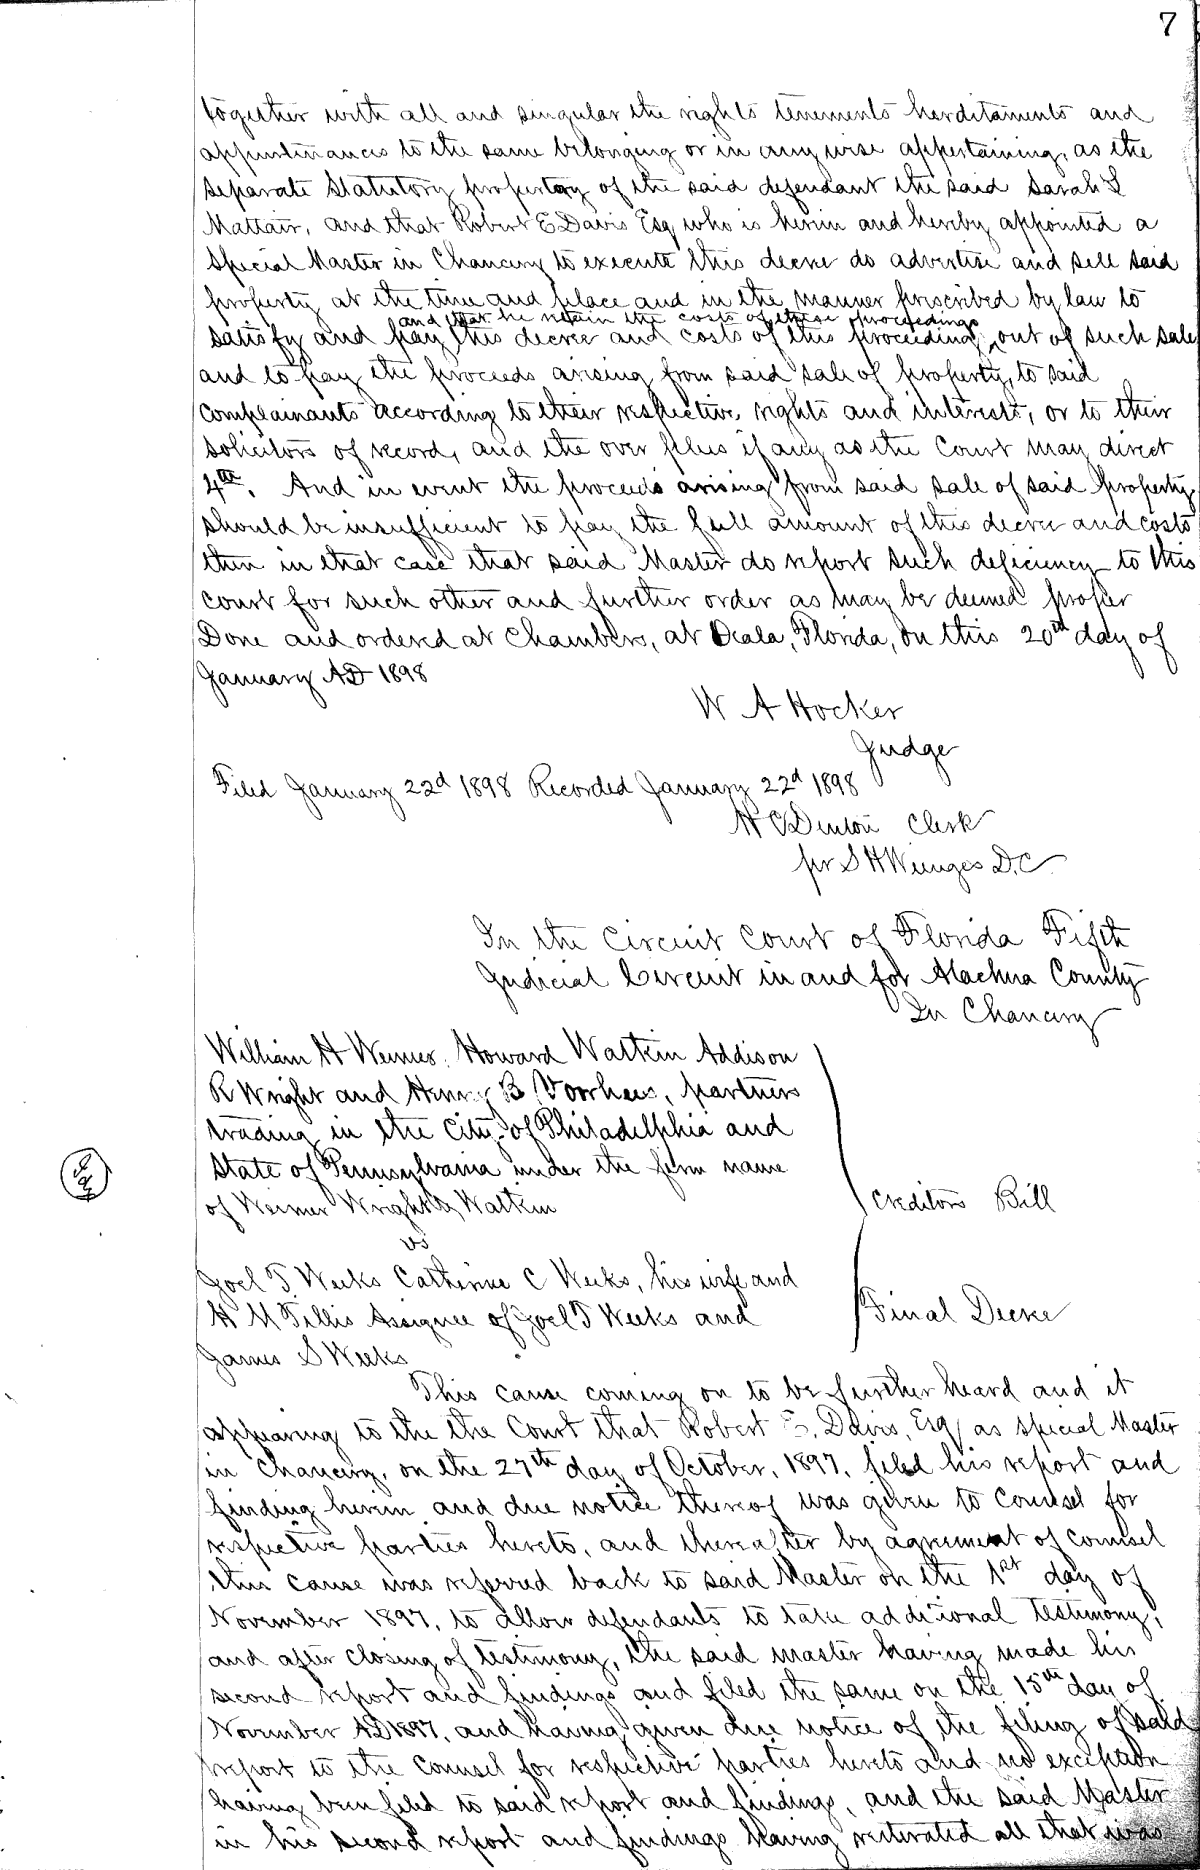 7
together with all and singular the rights tenements herditaments and
appurtinances to the same belonging or in any wise appertaining, as the
separate Statutory property of the said defendant the said Sarah L
Mattair, and that Robert E Davis Esq who is herein and hereby appointed a
Special Master in Chancery to execute this decree do advertise and sell said
property at the time and place and in the manner prescribed by law to
and that he retain the costs of these proceedings
satisfy and pay this decree and costs of this proceeding, out of such sale
and to pay the proceeds arising from said sale of property, to said
complainants according to their respective rights and interests, or to their
solicitors of record, and the over plus if any as the Court may direct
4th. And in event the proceeds arising from said sale of said property
should be insufficient to pay the full amount of this decree and costs
then in that case that said Master do report such deficiency to this
court for such other and further order as may be deemed proper
Done and ordered at Chambers, at Ocala, Florida, on this 20th day of
January AD 1898
W A Hocker
Judge
Filed January 22d 1898 Recorded January 22d 1898
H C Denton Clerk
pr S H Wienges D.C.
In the Circuit Court of Florida Fifth
Judicial Circuit in and for Alachua County
In Chancery
William H Weimer, Howard Watkin Addison
R Wright and Henry B Voorhees, partners
trading in the City of Philadelphia and
State of Pennsylvania under the firm name
of Weimer Wright & Watkin
Creditors Bill
vs
Joel T. Weeks Catherine C Weeks, his wife and
H M Tillis Assignee of Joel T Weeks and
Final Decree
James S Weeks
This cause coming on to be further heard and it
appearing to the the Court that Robert E. Davis, Esq, as Special Master
in Chancery, on the 27th day of October, 1897, filed his report and
finding herein and due notice thereof was given to counsel for
respective parties hereto, and thereafter by agreement of counsel
this cause was referred back to said Master on the 1st day of
November 1897, to allow defendants to take additional testimony,
and after closing of testimony, the said master having made his
second report and findings and filed the same on the 15th day of
November AD 1897, and having given due notice of the filing of said
report to the counsel for respective parties hereto and no exception
having been filed to said report and findings, and the said Master
in his second report and findings having reiterated all that was